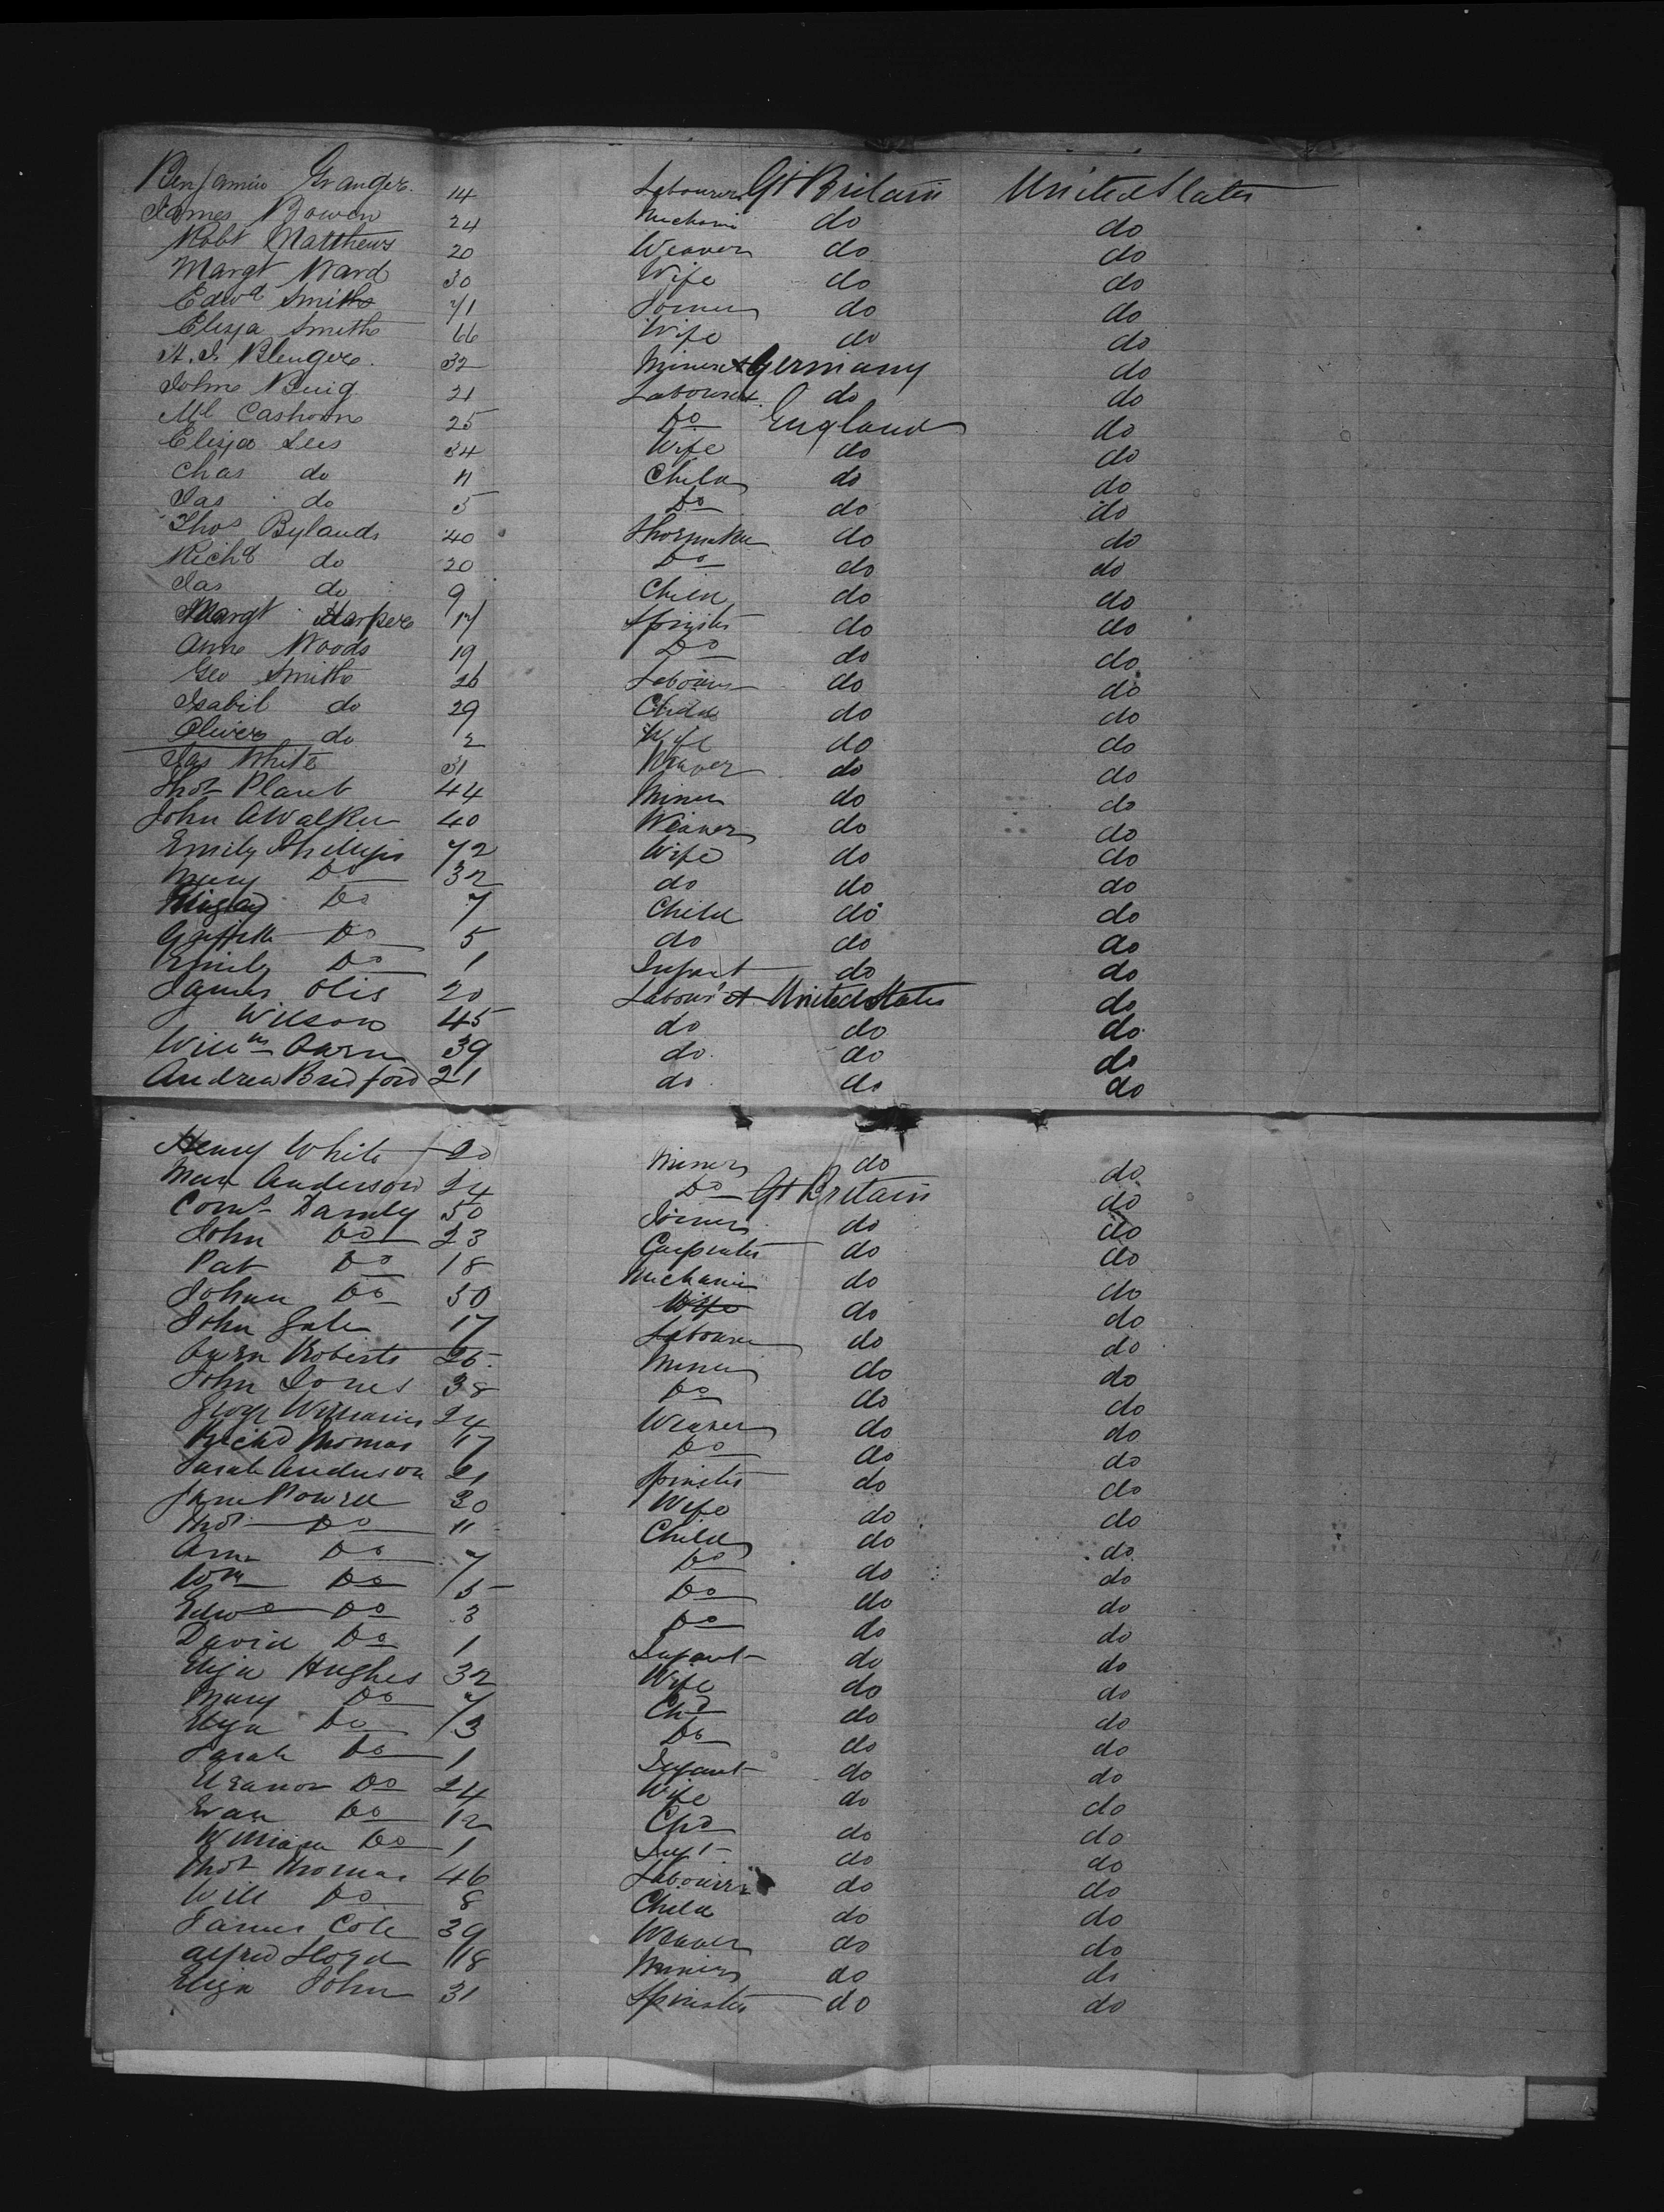 Benjamin Granger 14 Labourer Gt Britain United States
James Bowen 24 Mechanic do do
Robt Matthews 20 Weaver do do
Margt Ward 30 Wife do do
Edwd Smith 71 Joiner do do
Eliza Smith 66 Wife do do
32 Miner Germany do
John 21 Labourer do do
Ml 25 Do England do
Eliza Lees 34 Wife do do
Chas do 11 Child do do
Jas do 5 Do do do
Thos Bylands 40 Shoemaker do do
Richd do 20 Do do do
Jas do 9 Child do do
Margt Harper 17 Spinster do do
Anne Woods 19 Do do do
Geo Smith 26 Labourer do do
Isabil do 29 Child do do
Oliver do 2 Wife do do
Jas White 31 Weaver do do
Thos Plant 44 Miner do do
John A Walker 40 Weaver do do
Emily Phillips 72 Wife do do
Mary Do 32 do do do
Do 7 Child do do
Griffith Do 5 do do do
Emily Do 1 Infant do do
James Olis 20 Labour United States do
J Wilson 45 do do do
Willm Owen 39 do do do
Andrew Bradford 21 do do do
Henry White 20 Miner do do
Anderson 24 Do Gt Britain do
Corns Damly 50 Joiner do do
John Do 23 Carpenter do do
Pat Do 18 Mechanic do do
Johan Do 50 Wife do do
John Gale 17 Labourer do do
Owen Roberts 25 Miner do do
John Jones 38 Do do do
George Williams 24 Weaver do do
Richd Thomas 17 Do do do
Sarah Anderson 21 Spinster do do
Jane Powell 30 Wife do do
Thos Do 11 Child do do
Ann Do 7 Do do do
Wm Do 5 Do do do
Edwd Do 3 Do do do
David Do 1 Infant do do
Eliza Hughes 32 Wife do do
Mary Do 7 Chd do do
Eliza Do 3 Do do do
Sarah Do 1 Infant do do
Eleanor Do 24 Wife do do
Evan Do 12 Chd do do
William Do 1 Inft do do
Thos Thomas 46 Labourer do do
Will Do 8 Child do do
James Cole 39 Weaver do do
Alfred Lloyd 18 Miner do do
Eliza John 31 Spinster do do